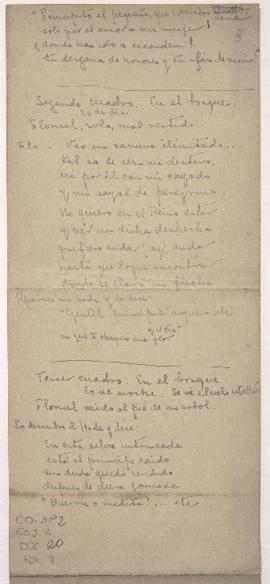 "Principito el pequeño, que
sólo por el amor a un mujer!
¿donde has ido a esconder!
tu de honores y tu
8
Segundo cuadro. En el bosque.
Es de día
Florisel, solo, mal vestido.
Flo. - Veo un camino ilimitado...
tal ha de ser mi destino,
iré por él con mi cayado
y mi sayal de peregrino
No quiero en el Reino estar
y ver mi dicha deshecha
prefiero andar y andar
hasta que logre encontrar
Aparece un hada y le dice:
"Gentil principito etc
en que te una flor
Tercer cuadro. En el bosque
Es de noche. Se ve el cielo
Florisel caído al pié de un árbol.
Lo descubre el Hada y dice:
En esta selva intrincada
está el príncipe caído
sin duda quedó rendido
después de dura jornada
"Duerme o medita?... etc
CAJ. 4
20
8